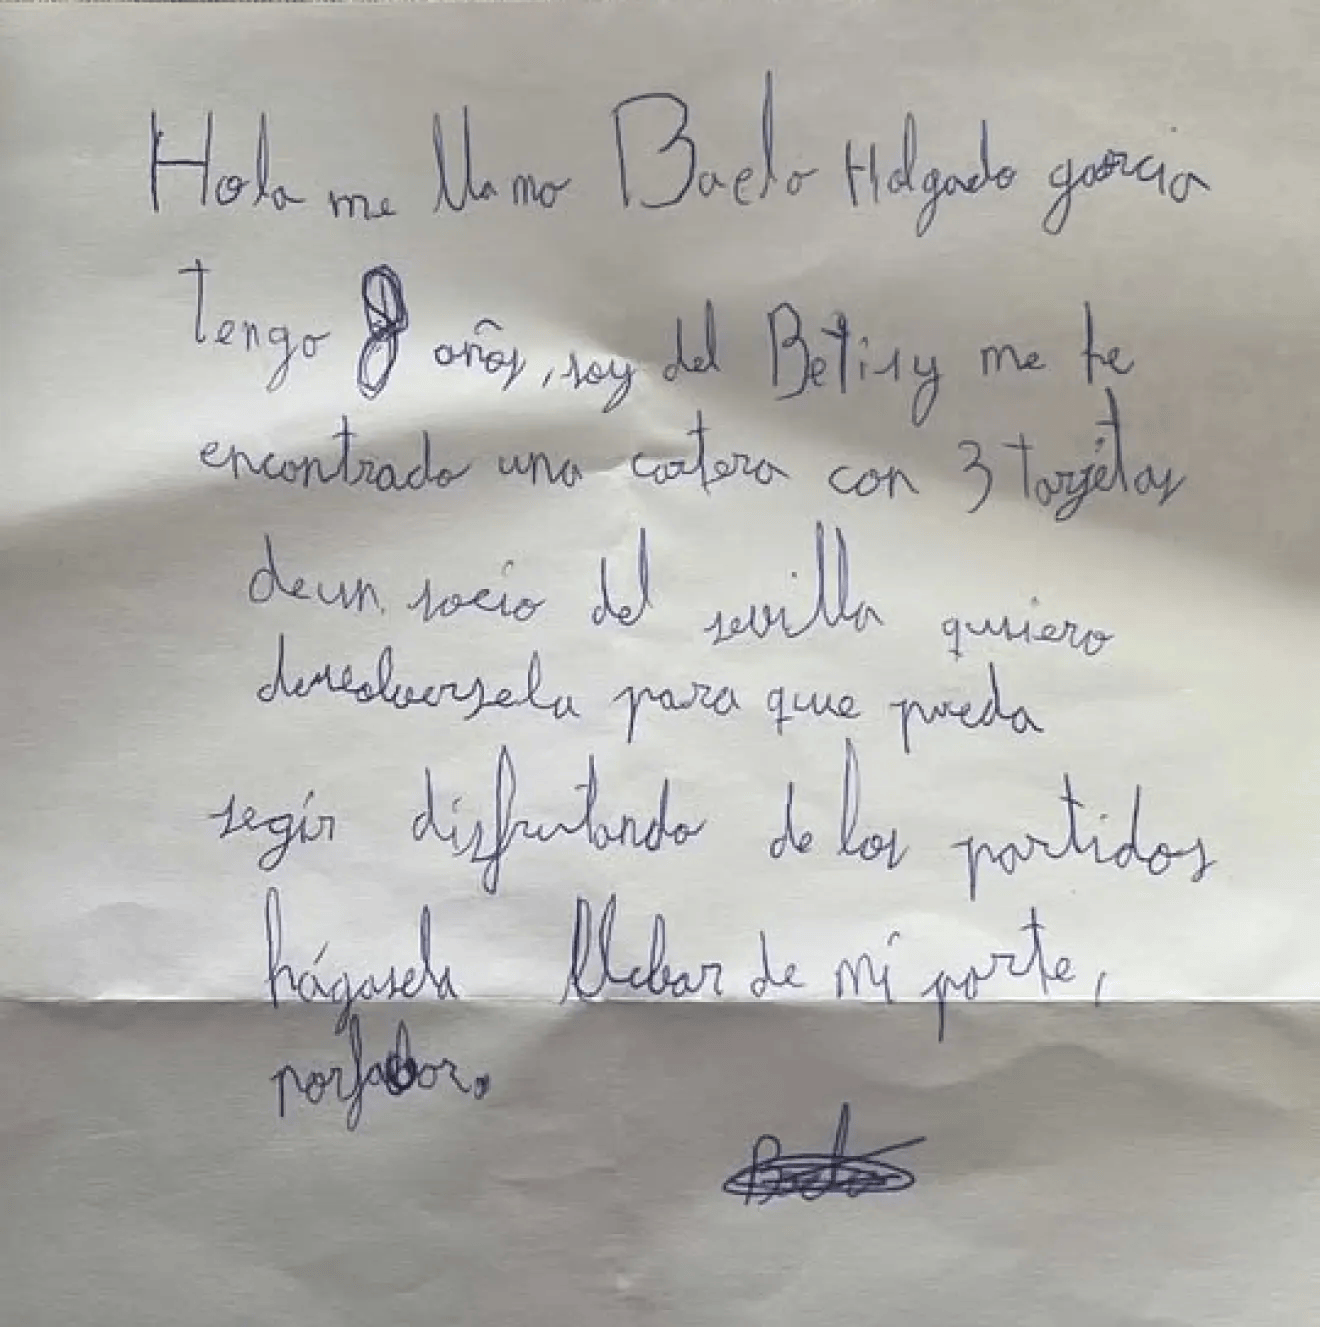 Hola me llamo Baelo Holgado garcia
Tengo 8 años, soy del Betis y me he
encontrado una cartera con 3 tarjétas
de un socio del sevilla quiero
devolversela para que pueda
segír disfrutando de los partidos
hágasela llebar de mi parte,
porfabor.
Baelo